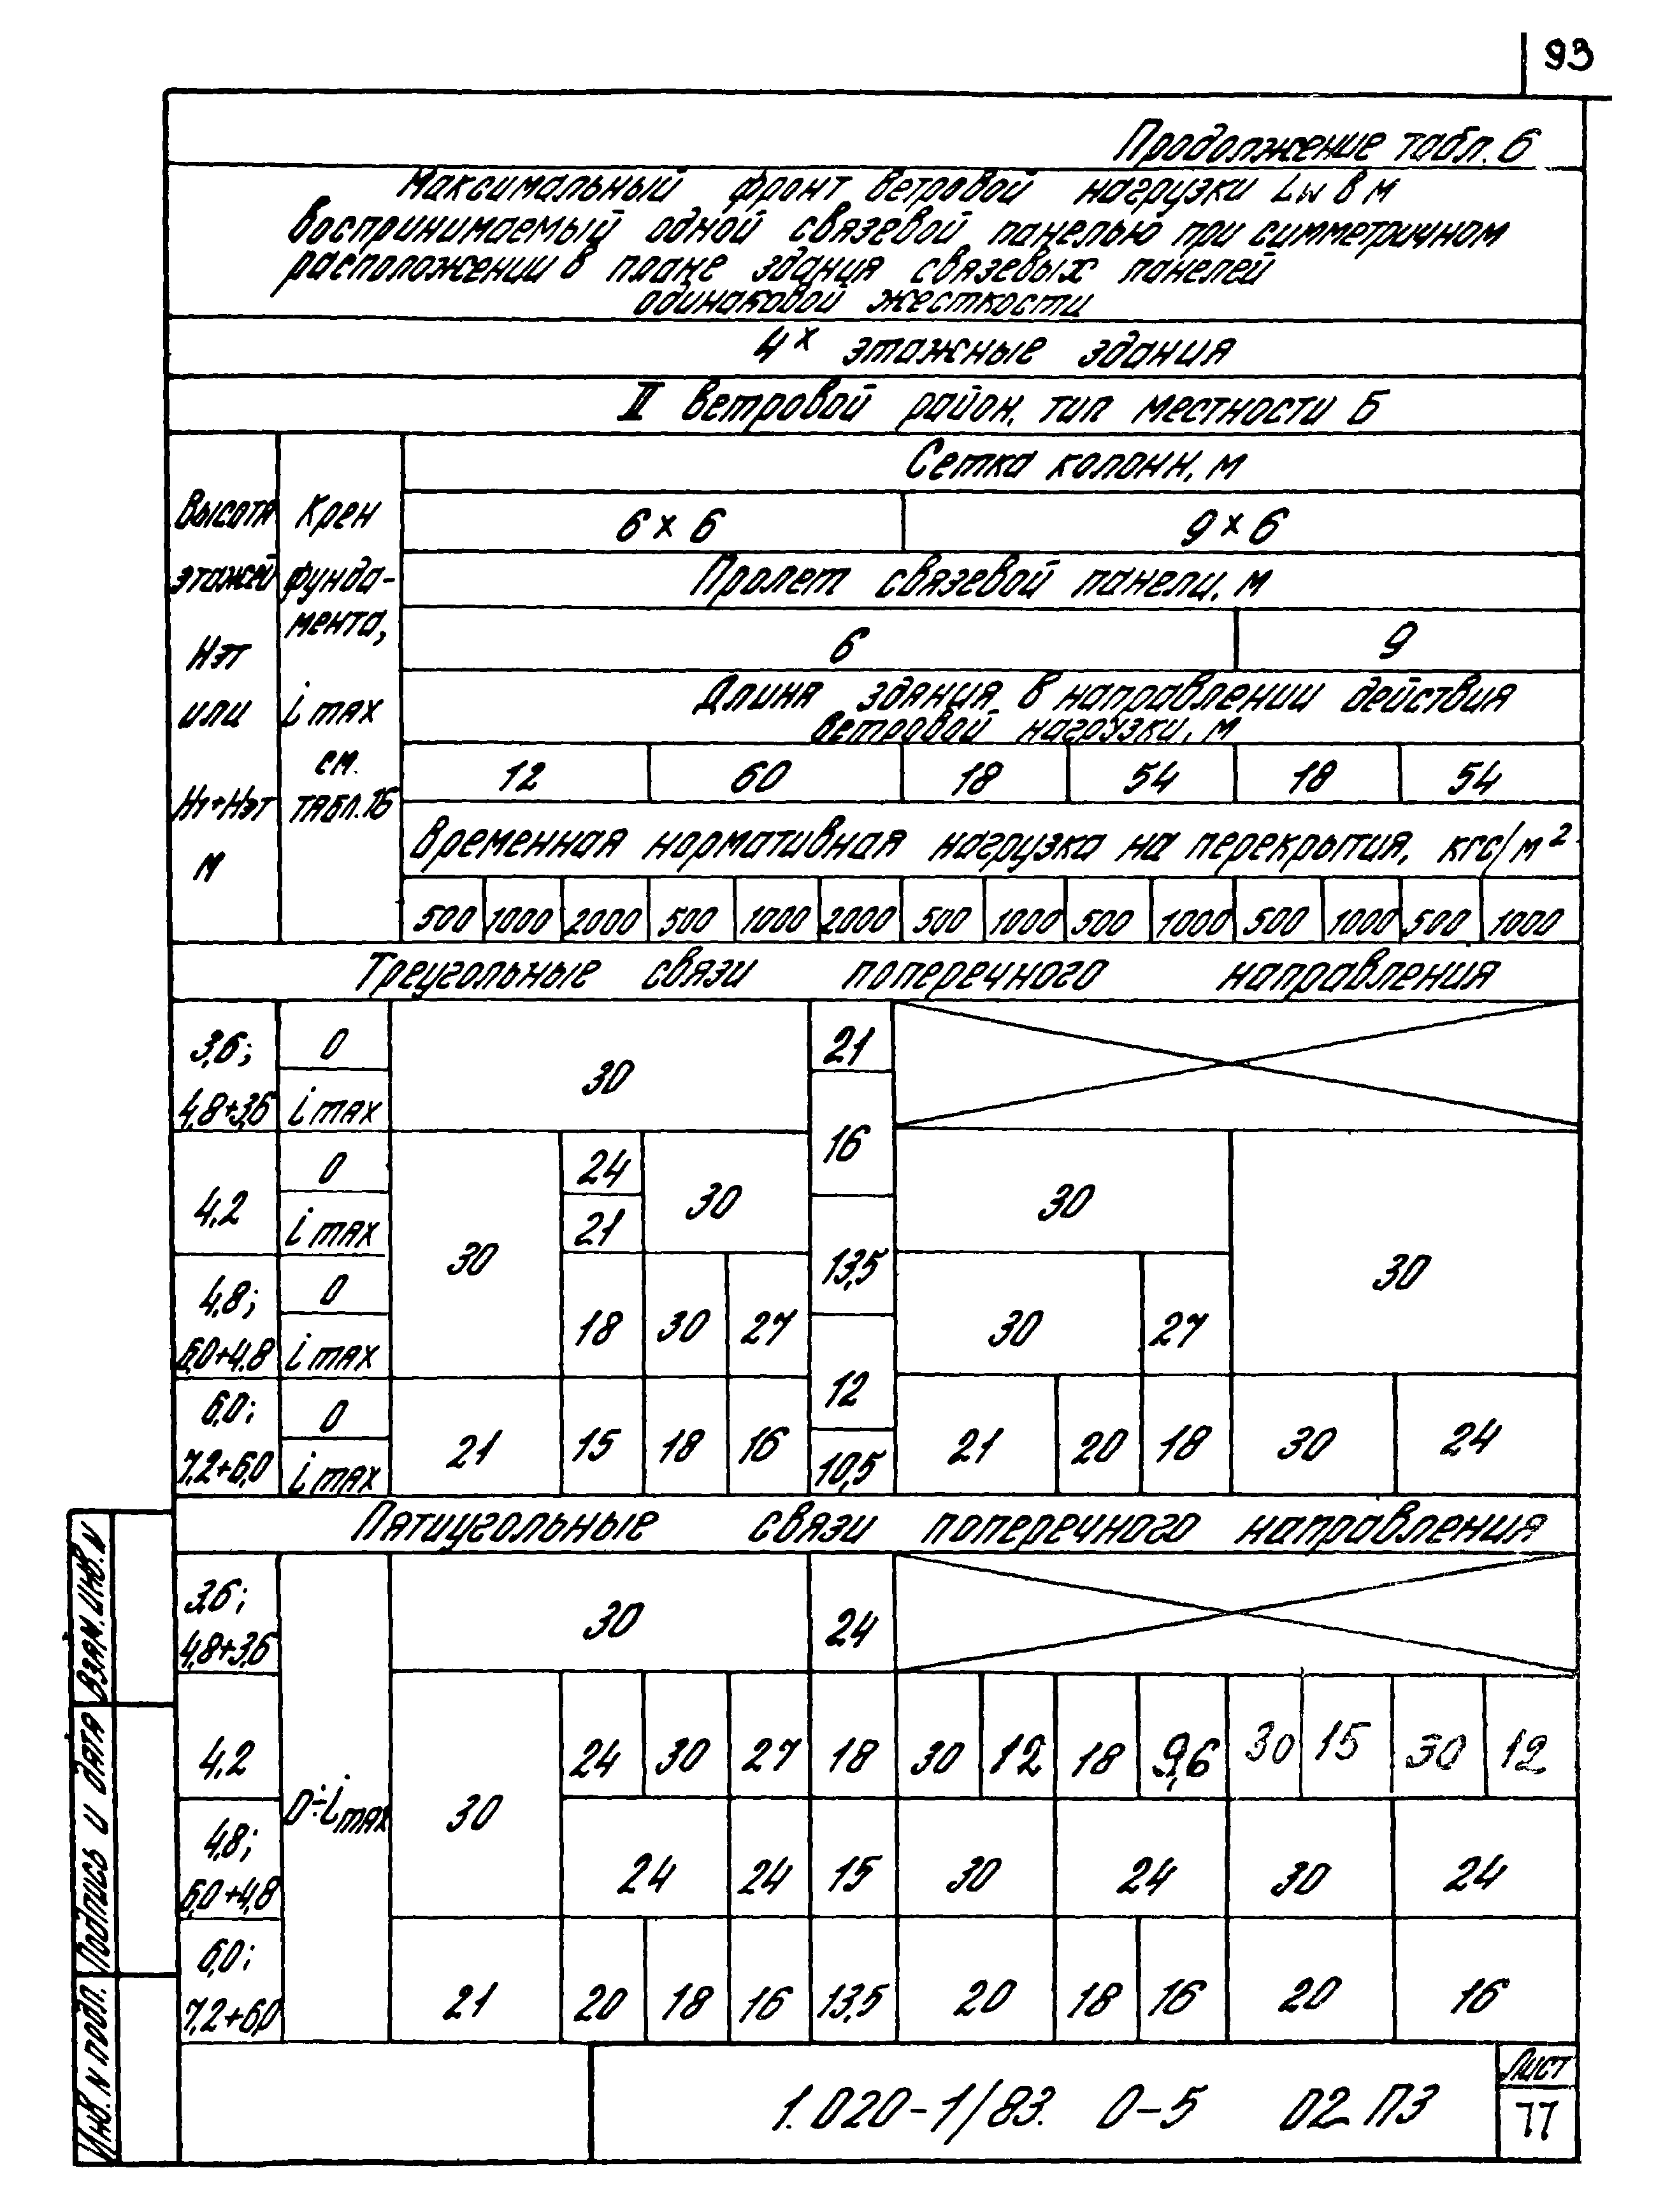 93
Продолжение табл. 6
Максимальный фронт ветровой нагрузки Lw в м
воспринимаемый одной связевой панелью при симметричном
расположении в плане здания связевых панелей
одинаковой жесткости
4х этажные здания
II ветровой район, тип местности Б
Сетка колонн, м
Высота этажей Нэт или Н1+Нэт м
Крен фунда-
мента,
i max
см.
табл. 16
6 х 6 9 х 6
Пролет связевой панели, м
6 9
Длина здания в направлении действия
ветровой нагрузки, м
12 60 18 54 18 54
Временная нормативная нагрузка на перекрытия, кгс/м²
500 1000 2000 500 1000 2000 500 1000 500 1000 500 1000 500 1000
Треугольные связи поперечного направления
3,6; 0 30 21
4,8+3,6 i max 16
4,2 0 30 24 30 30 30
i max 21 13,5
4,8; 0 18 30 27 30 27
6,0+4,8 i max 12
6,0; 0 21 15 18 16 21 20 18 30 24
7,2+6,0 i max 10,5
Пятиугольные связи поперечного направления
3,6; 30 24
4,8+3,6
4,2 0÷i max 30 24 30 27 18 30 12 18 9,6 30 15 30 12
4,8; 24 24 15 30 24 30 24
6,0+4,8
6,0; 21 20 18 16 13,5 20 18 16 20 16
7,2+6,0
Инв. N подл. Подпись и дата Взам. инв. N
1.020-1/83. 0-5 02 ПЗ
Лист
77